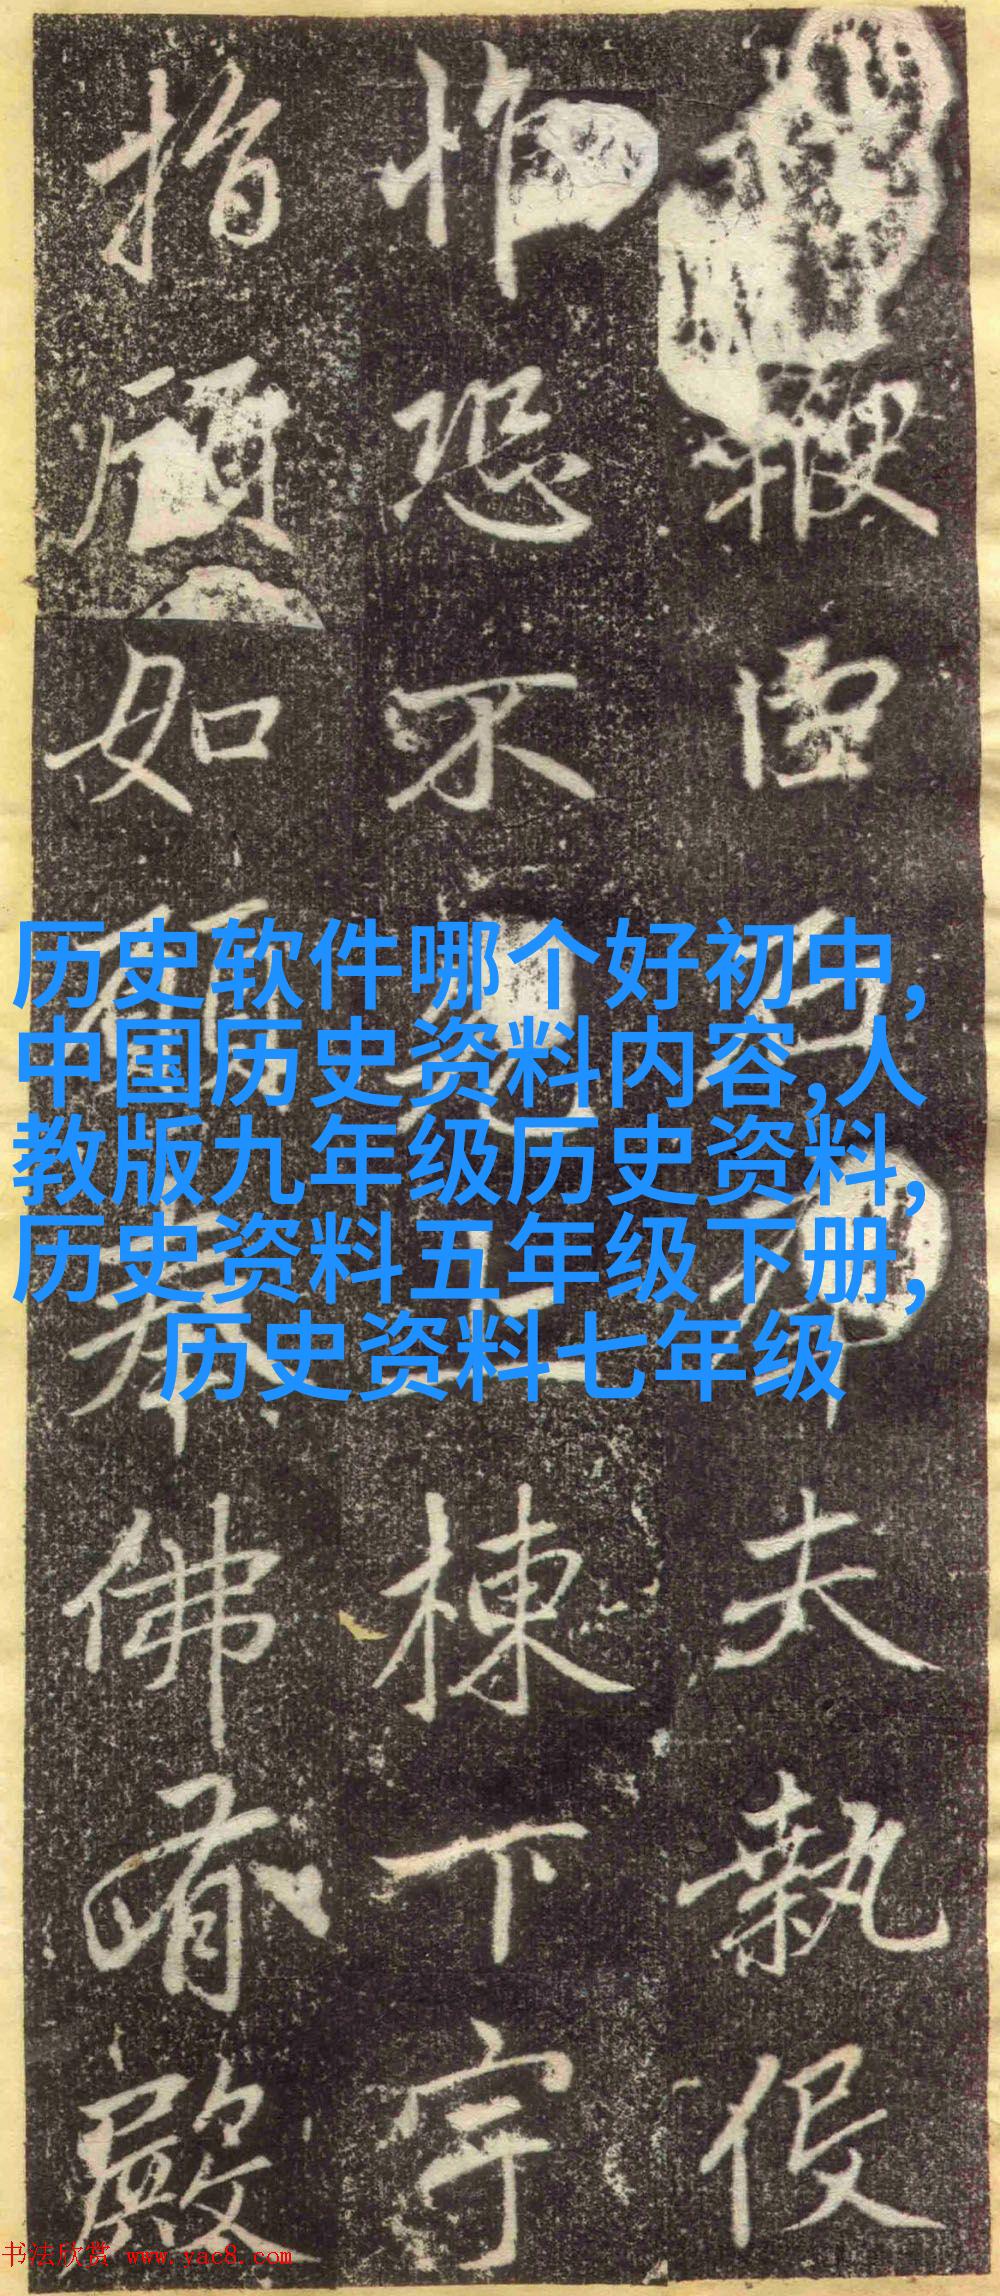 夫執
恐不上棟下宇
指顧如佛有殿
历史软件哪个好初中,
中国历史资料内容,人
教版九年级历史资料,
历史资料五年级下册,
历史资料七年级
书法欣赏 www.yac8.com